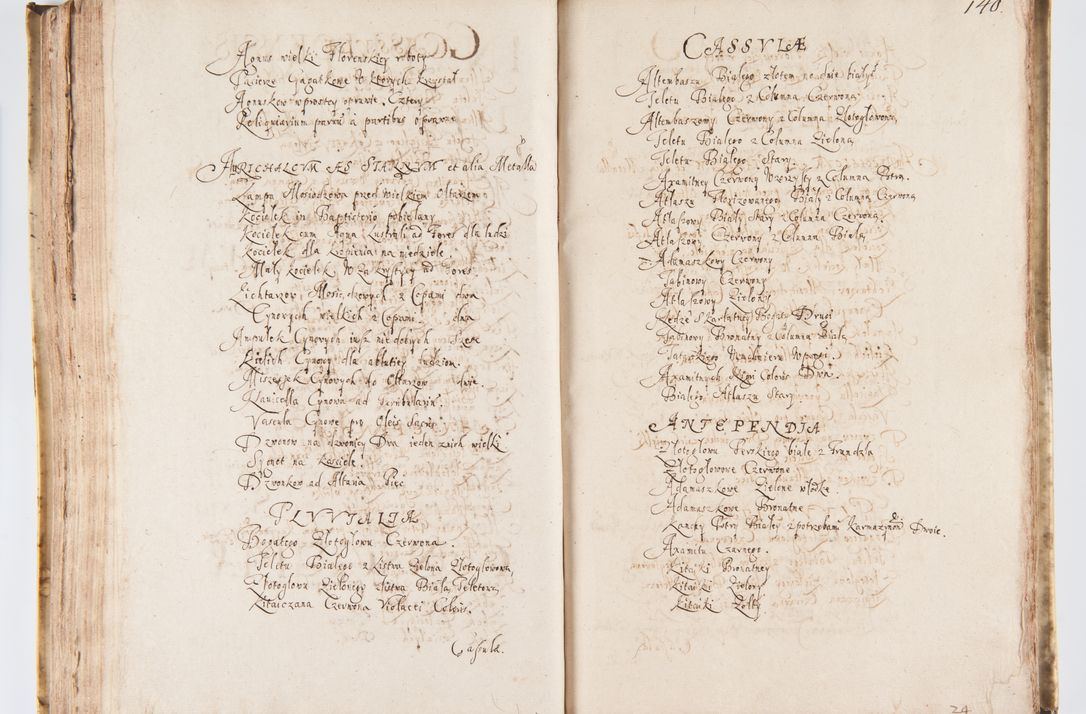 Agnus wielki Florenskiey roboty
Pacierze Gagatkowe W ktorych krzyształ
Agnuskow w prostey oprawie, Cztery
Reliquiarium parvum a partibus oprawne
AURICHALCUM AES STANNUM et alia Metalla
Lampa Mosiądzowa przed Wielkiem Ołtarzem
Kociełek in Baptisterio pobielany
Kociełek cum Aqua Lustrali ad Fores dla ludzi
Kociełek dla kropienia na niedziele
Mały kociełek W Zakrystyey ad Fores
Lichtarzow Mosiędzowych z Copami dwa
Cynowych wielkich z Copami dwa
Ampułek Cynowych insz nie dobrych Szesc
Kielich Cynowy dla ablutiey ludziom
Miseczek Cynowych do Ołtarzow dwie.
Nauicella Cynowa ad Thuribularium
Vascula Cynowe pro Oleis Sacris
Dzwonow na dzwonicy Dwa ieden z nich wielki
Sygnet na kosciele
Dzwonkow ad Altaria Pięc
PLVVIALIA
Bogatego Złotogłowu Czerwona.
Teletu Białego z Listwa Zielona Złotogłowowa
Złotogłowu Zielonego Listwa Biała Teletowa
Kitaiczana Czerwona Violacei Coloris.
Casulæ.
140.
CASSVLÆ
Altembaszu Białego złotem na dnie białym
Teletu Białego z Columna Czerwona
Altembaszowy Czerwony z Columna Złotogłowowa
Teletu Białego z Columna Zielona
Teletu Białego Stary.
Axamitney Czerwony Wzorzysty z Columna Petry.
Atłasu Florizowanego Biały z Columna Czerwona
Atłasowy Biały Stary z Columna Czerwona
Atłasowy Czerwony z Columna Biała
Adamaszkowy Czerwony
Tabinowy Czerwony
Atłasowy Zielony
Tabinowy Bronatny z Columna Biała
Axamitnych Nigri Coloris Dwa.
Białego Atłaszu Stary
ANTEPENDIA
Złotogłowu Perskiego białe z Frandzla
Złotogłowowe Czerwone
Adamaszkowe Zielone
Adamaszkowe Bronatne
Kanchy Petry Białey z potrzebami Karmazynowe Dwoie.
Axamitu Czarnego.
Kitaiki Bronatney
Kitaiki Zieloney
Kitaiki Zołty
24